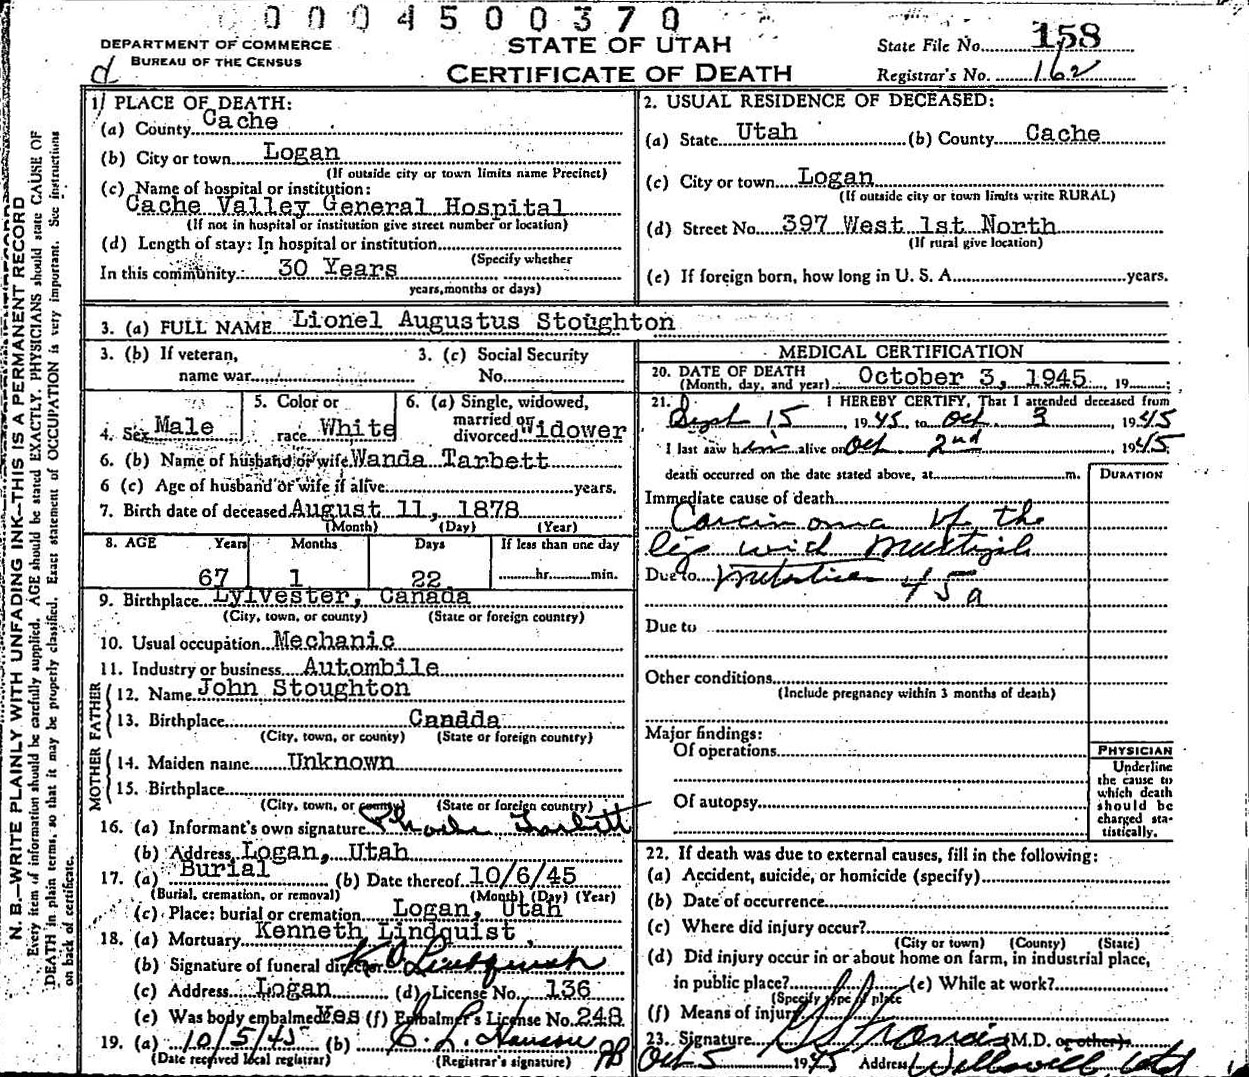 0004500370
DEPARTMENT OF COMMERCE
BUREAU OF THE CENSUS
d
STATE OF UTAH
CERTIFICATE OF DEATH
State File No. 158
Registrar's No. 162
N. B.—WRITE PLAINLY WITH UNFADING INK—THIS IS A PERMANENT RECORD
Every item of information should be carefully supplied. AGE should be stated EXACTLY. PHYSICIANS should state CAUSE OF
DEATH in plain terms, so that it may be properly classified. Exact statement of OCCUPATION is very important. See instructions
on back of certificate.
1. PLACE OF DEATH:
(a) County Cache
(b) City or town Logan
(If outside city or town limits name Precinct)
(c) Name of hospital or institution:
Cache Valley General Hospital
(If not in hospital or institution give street number or location)
(d) Length of stay: In hospital or institution
(Specify whether
In this community: 30 Years
years, months or days)
2. USUAL RESIDENCE OF DECEASED:
(a) State Utah (b) County Cache
(c) City or town Logan
(If outside city or town limits write RURAL)
(d) Street No. 397 West 1st North
(If rural give location)
(e) If foreign born, how long in U. S. A. years.
3. (a) FULL NAME Lionel Augustus Stoughton
3. (b) If veteran,
name war
3. (c) Social Security
No.
4. Sex Male
5. Color or
race White
6. (a) Single, widowed,
married or
divorced Widower
6. (b) Name of husband or wife Wanda Tarbett
6 (c) Age of husband or wife if alive years.
7. Birth date of deceased August 11, 1878
(Month) (Day) (Year)
8. AGE Years Months Days If less than one day
67 1 22 hr. min.
9. Birthplace Lylvester, Canada
(City, town, or county) (State or foreign country)
10. Usual occupation Mechanic
11. Industry or business Autombile
FATHER
12. Name John Stoughton
13. Birthplace Candda
(City, town, or county) (State or foreign country)
MOTHER
14. Maiden name Unknown
15. Birthplace
(City, town, or county) (State or foreign country)
16. (a) Informant's own signature Phoebe Tarbett
(b) Address Logan, Utah
17. (a) Burial (b) Date thereof 10/6/45
(Burial, cremation, or removal) (Month) (Day) (Year)
(c) Place: burial or cremation Logan, Utah
18. (a) Mortuary Kenneth Lindquist
(b) Signature of funeral director K O Lindquist
(c) Address Logan (d) License No. 136
(e) Was body embalmed Yes (f) Embalmer's License No. 248
19. (a) 10/5/45 (b) C. L. Hanson
(Date received local registrar) (Registrar's signature)
MEDICAL CERTIFICATION
20. DATE OF DEATH
(Month, day, and year) October 3, 1945, 19
21. I HEREBY CERTIFY, That I attended deceased from
Sept 15, 1945, to Oct 3 1945
I last saw him alive on Oct 2nd 1945
death occurred on the date stated above, at m.
DURATION
Immediate cause of death
Carcinoma of the
lip with multiple
Due to metastices 45a
Due to
Other conditions
(Include pregnancy within 3 months of death)
Major findings:
Of operations
Of autopsy
PHYSICIAN
Underline
the cause to
which death
should be
charged sta-
tistically.
22. If death was due to external causes, fill in the following:
(a) Accident, suicide, or homicide (specify)
(b) Date of occurrence
(c) Where did injury occur?
(City or town) (County) (State)
(d) Did injury occur in or about home on farm, in industrial place,
in public place? (e) While at work?
(Specify type of place
(f) Means of injury
23. Signature Francis M.D. or other)
Oct 5 1945 Address Wellsville, Utah